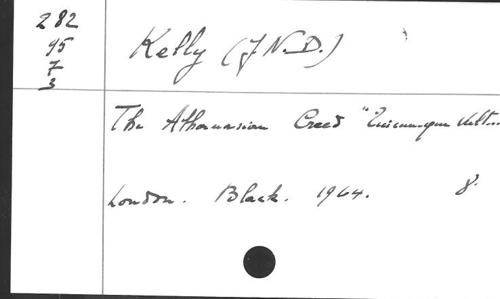 282
95
7
3
Kelly (J.N.D.)
The Athanasian Creed "Quicumque Vult...
London. Black. 1964. 8.